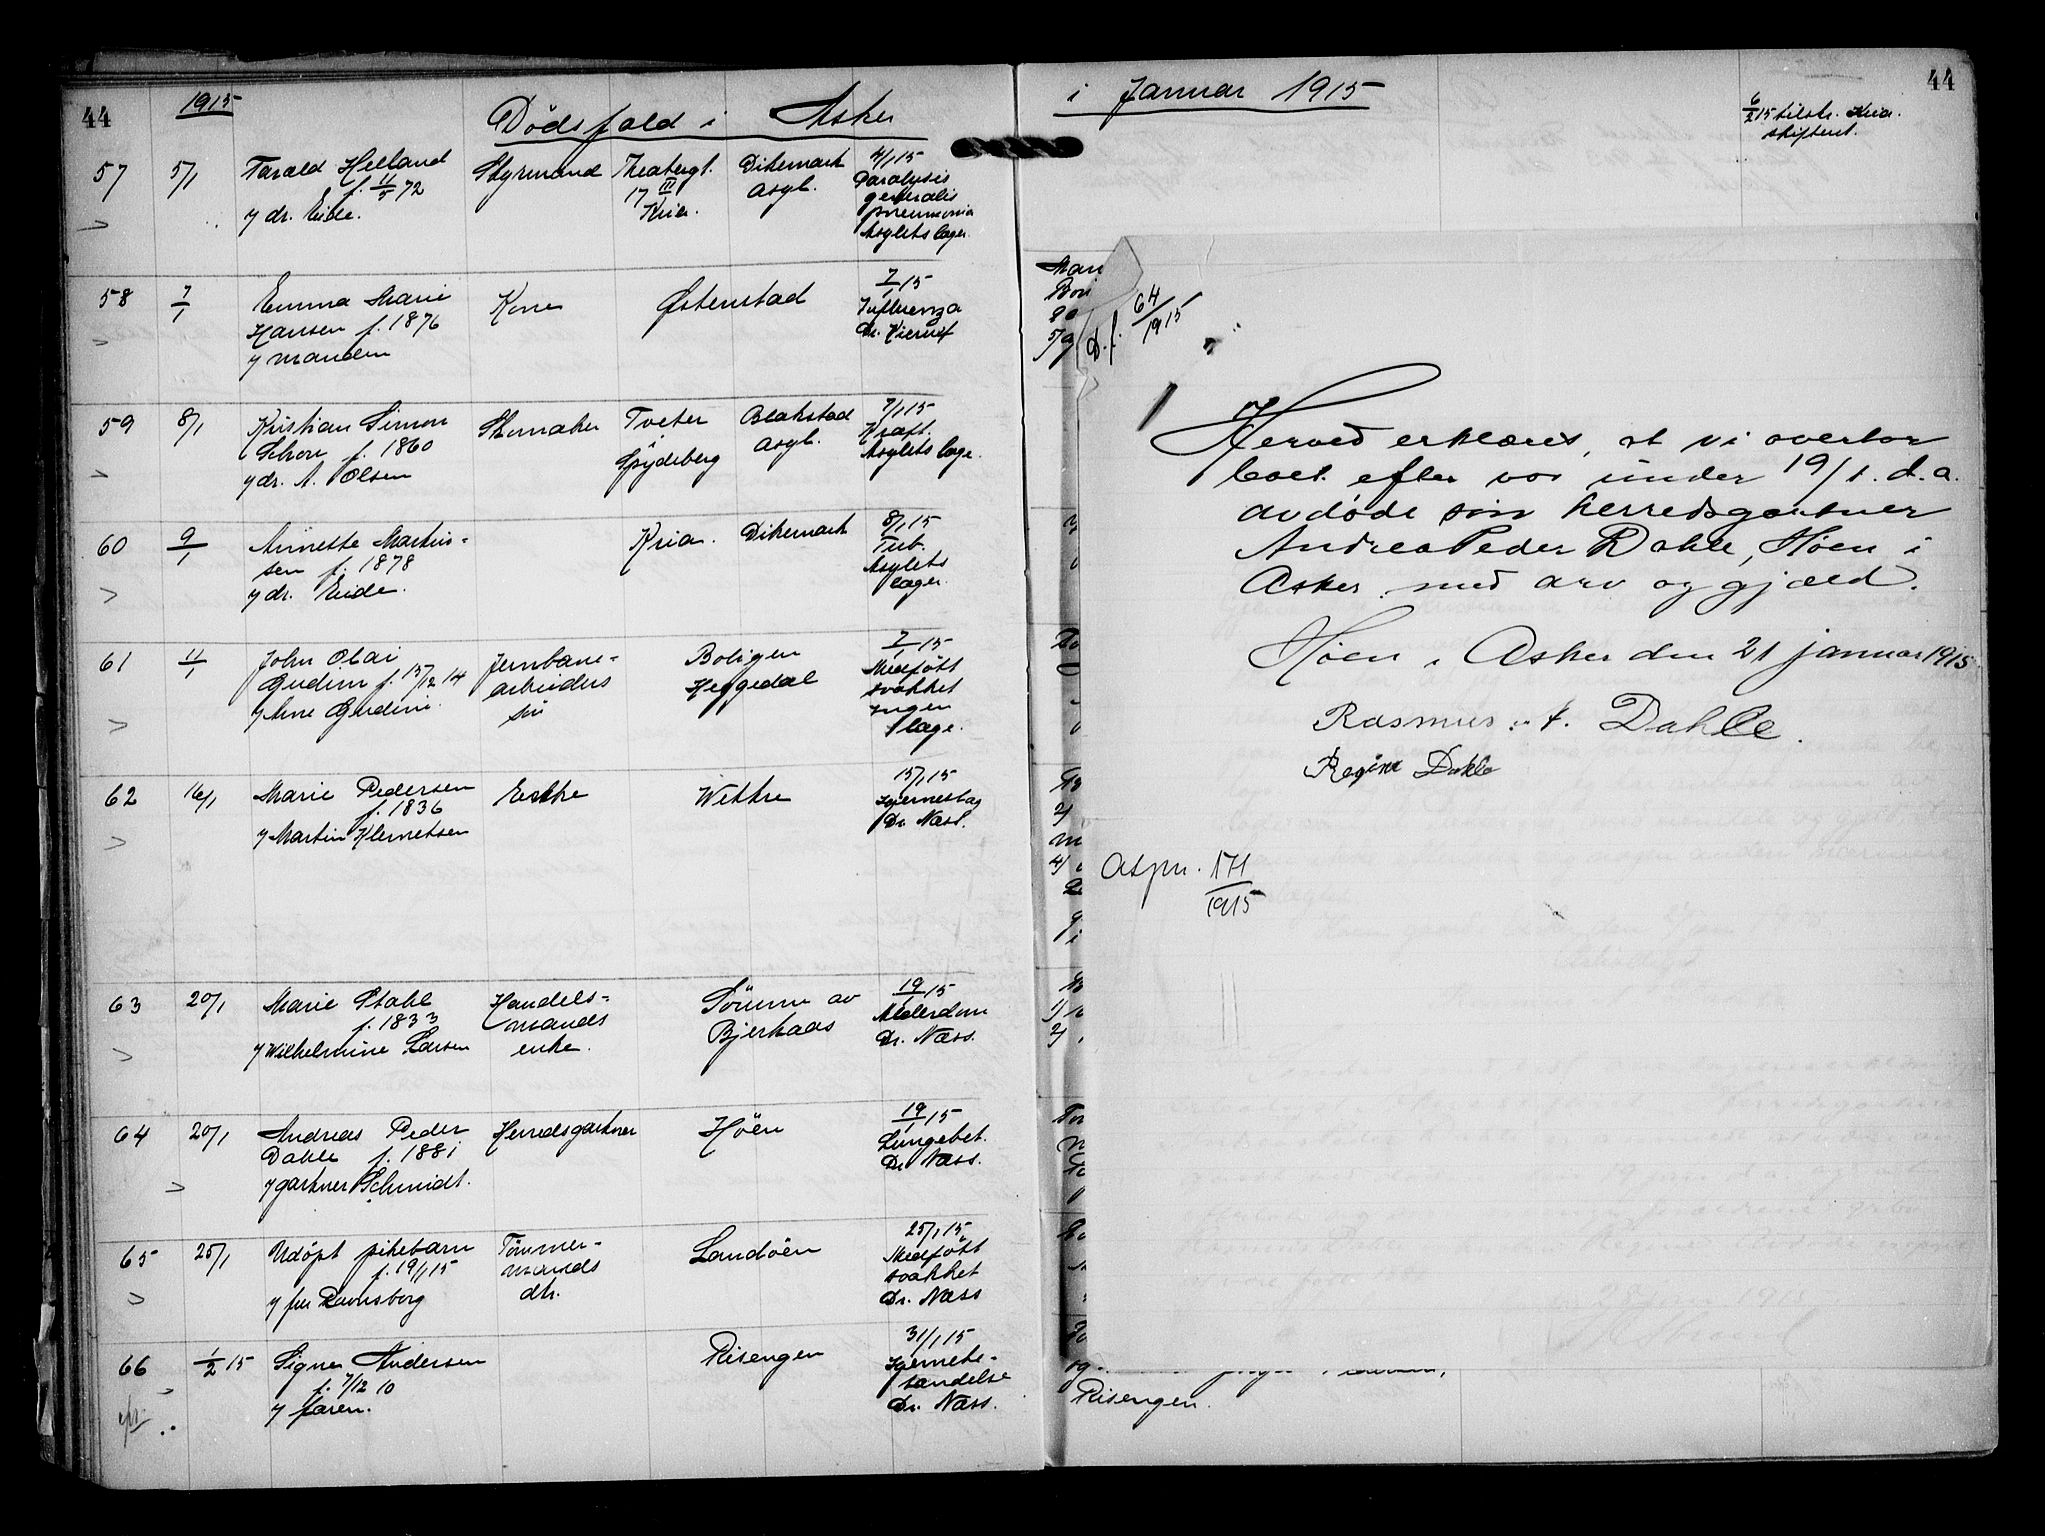 44
1915
Dödsfald i Asker
57 5/1 Tarald Helland Styrmand Theatergt. Dikemark 4/1 15
f. 11/5 72 17 III asyl. Paralysis
y dr. Eide. Kria. generalis
pneumonia
Asylets læge.
58 7/1 Emma Marie Kone Østenstad 7/1 15
Hansen f. 1876 Influenza
y manden Dr. Kierulf
59 8/1 Kristian Simon Skomaker Tveter Blakstad 7/1 15
f. 1860 Spydeberg asyl. Kræft.
y dr. A. Olsen Asylets læge.
60 9/1 Annette Martin- Kria. Dikemark 8/1 15
sen f. 1878 Tub.
y dr. Eide. Asylets
læge.
61 11/1 John Olai Jernbane- Boligen 7/1 15
Gudim f. 15/12 14 arbeiders Heggedal Medfött
y Arne Gudim. sön svakhet
Ingen
læge.
62 16/1 Marie Pedersen Enke Wettre 15/1 15
f. 1836 Hjerneslag
y Martin Klemetsen Dr. Næss.
63 20/1 Marie Stokl Handels- Sönnen av 19/1 15
f. 1833 mands Bjerkaas Alderdom
y Wilhelmine Larsen enke. Dr. Næss.
64 20/1 Andreas Peder Herredsgartner Höen 19/1 15
Dahle f. 1881 Lungebet.
y gartner Schmidt. Dr. Næss.
65 25/1 Udöpt pikebarn Tømmer- Landöen 25/1 15
f. 19/1 15 mands Medfött
y fru Ravnsborg dtr. svakhet
Dr. Næss
66 1/2 15 Signe Andersen Risengen 31/1 15
f. 7/12 10 Hjernebe-
y faren. tændelse
Dr. Næss.
i Januar 1915
44
6/2 15 tilstr. Kria.
skifteret.
D.f. 64/1915
Herved erklæres, at vi overtar
boet efter vor under 19/1. d.a.
avdöde sön herredsgartner
Andreas Peder Dahle, Höen i
Asker med arv og gjæld.
Höen i Asker den 21 januar 1915
Rasmus A. Dahle.
Regine Dahle
Aspr. 171/1915
og
Risengen.